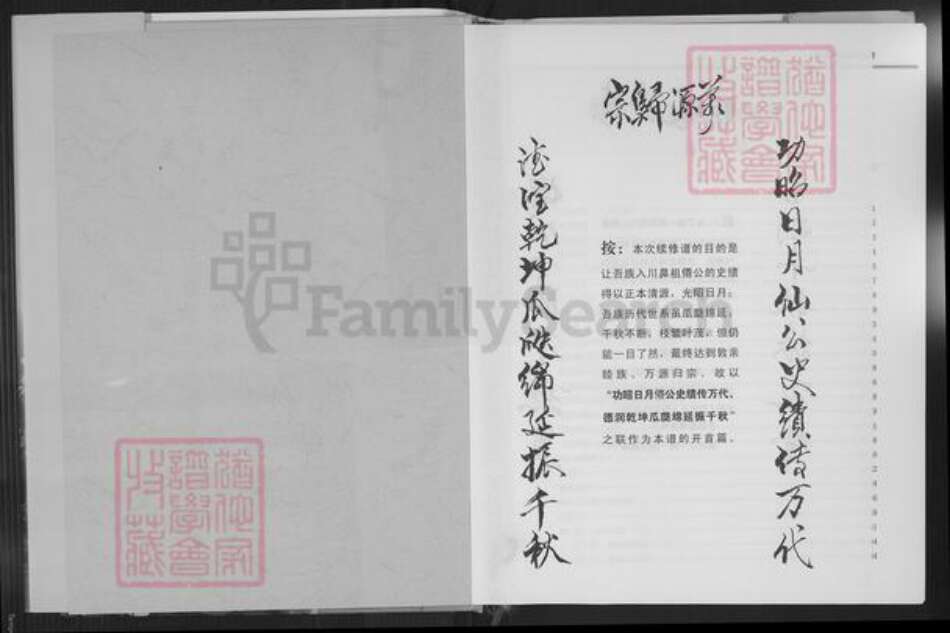 萬源歸宗
功昭日月仙公史绩传万代
德润乾坤瓜瓞绵延振千秋
按：本次续修谱的目的是
让吾族入川鼻祖僊公的史绩
得以正本清源，光昭日月；
吾族历代世系虽瓜瓞绵延，
千秋不断，枝繁叶茂，但仍
能一目了然，最终达到敦亲
睦族、万源归宗，故以
“功昭日月僊公史绩传万代，
德润乾坤瓜瓞绵延振千秋”
之联作为本谱的开首篇。
FamilySearch
猶他家
譜學會
收藏
猶他家
譜學會
收藏